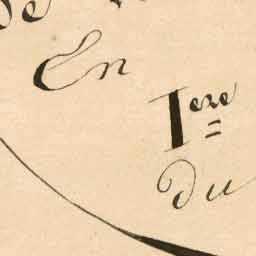 de
En
1ere
du